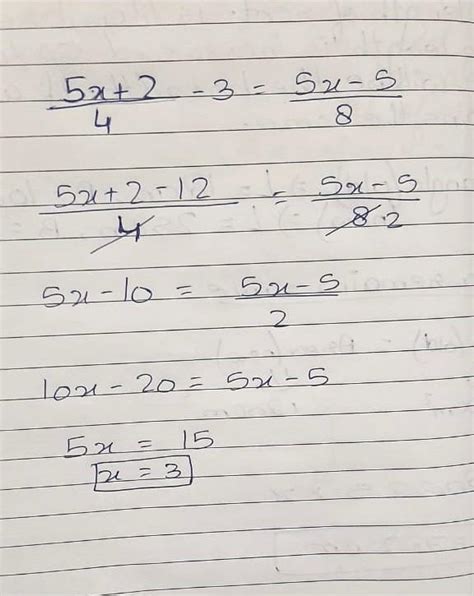 5x+2/4 - 3 = 5x-5/8
5x+2-12/4 = 5x-5/8 2
5x-10 = 5x-5/2
10x-20 = 5x-5
5x = 15
x = 3